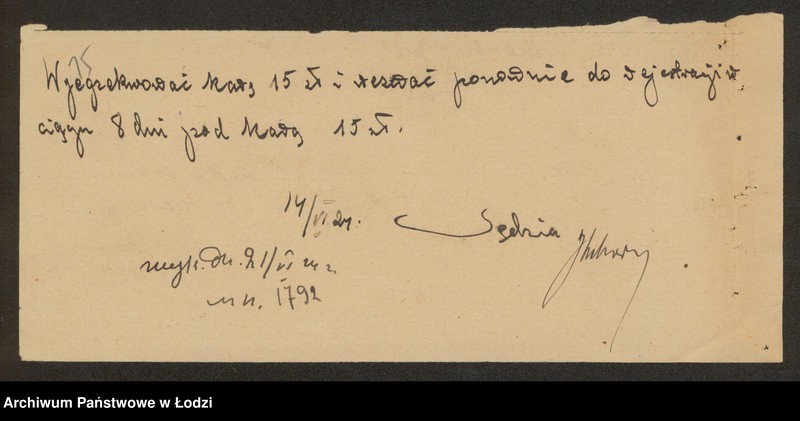 75
Wyegzekwować karę 15 zł i wezwać ponownie do rejestracji w
ciągu 8 dni pod karą 15 zł.
14/VI 24.
Sędzia
wyk. dn. 21/VI 24 r.
1792
Archiwum Państwowe w Łodzi